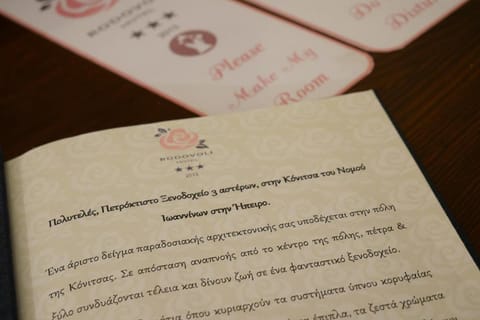 RODOVOLI
HOTEL
2012
Please
Make My
Room
Do
Disturb
RODOVOLI
HOTEL
2012
Πολυτελές, Πετρόκτιστο Ξενοδοχείο 3 αστέρων, στην Κόνιτσα του Νομού
Ιωαννίνων στην Ήπειρο.
Ένα άριστο δείγμα παραδοσιακής αρχιτεκτονικής σας υποδέχεται στην πόλη
της Κόνιτσας. Σε απόσταση αναπνοής από το κέντρο της πόλης, πέτρα &
ξύλο συνδυάζονται τέλεια και δίνουν ζωή σε ένα φανταστικό ξενοδοχείο.
όπου κυριαρχούν τα συστήματα ύπνου κορυφαίας
έπιπλα, τα ζεστά χρώματα